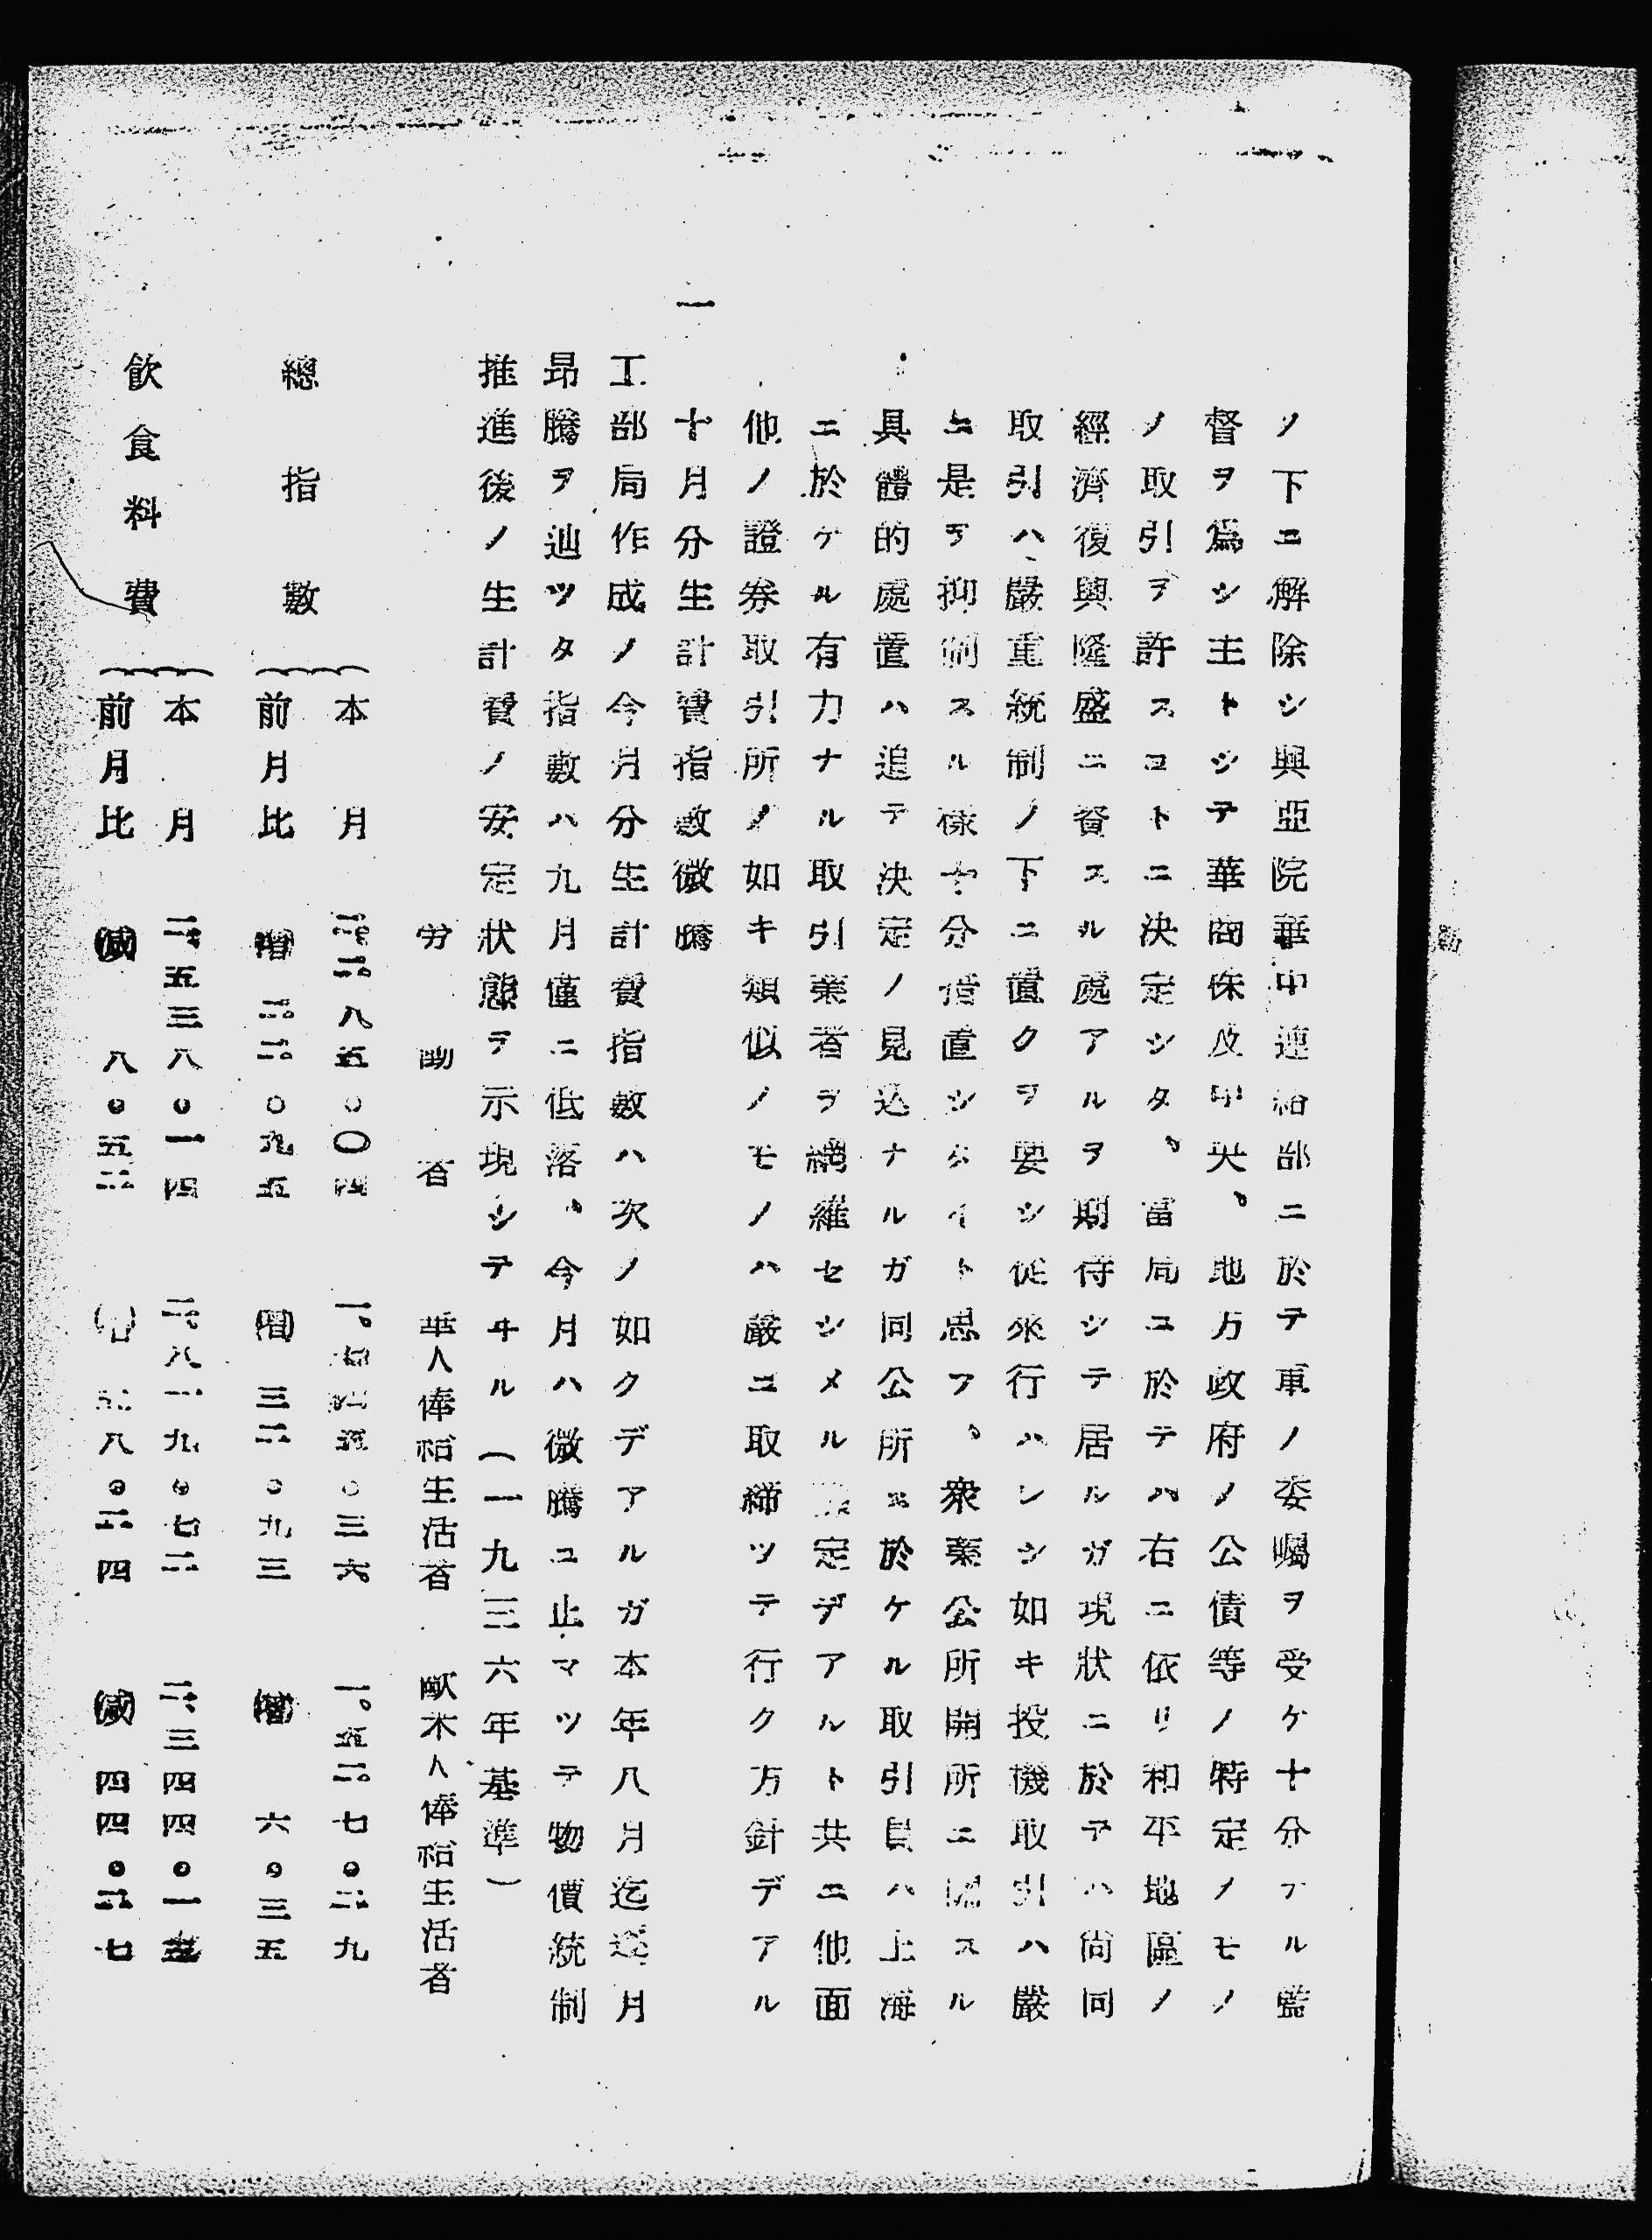 ノ下ニ解除シ興亞院華中連絡部ニ於テ軍ノ委囑ヲ受ケ十分ナル監
督ヲ爲シ主トシテ華商株及中央、地方政府ノ公債等ノ特定ノモノ
ノ取引ヲ許スコトニ決定シタ、當局ニ於テハ右ニ依リ和平地區ノ
經濟復興隆盛ニ資スル處アルヲ期待シテ居ルガ現狀ニ於テハ尙同
取引ハ嚴重統制ノ下ニ置クヲ要シ從來行ハレシ如キ投機取引ハ嚴
ニ是ヲ抑制スル樣十分措置シタイト思フ、衆業公所開所ニ關スル
具體的處置ハ追テ決定ノ見込ナルガ同公所ニ於ケル取引員ハ上海
ニ於ケル有力ナル取引業者ヲ網羅セシメル定デアルト共ニ他面
他ノ證券取引所ノ如キ類似ノモノハ嚴ニ取締ツテ行ク方針デアル
一 十月分生計費指數微騰
工部局作成ノ今月分生計費指數ハ次ノ如クデアルガ本年八月迄逐月
昂騰ヲ辿ツタ指數ハ九月僅ニ低落、今月ハ微騰ニ止マツテ物價統制
推進後ノ生計費ノ安定狀態ヲ示現シテヰル(一九三六年基準)
勞働者 華人俸給生活者 歐米人俸給生活者
總指數 本月 八五〇四 三六 一、五二七・二九
前月比 (增) 二二・九五 (增) 三二・九三 (增) 六・三五
飲食料費 本月 五三八・一四 八一九・七二 二、三四四・一
前月比 (減) 八・五二 八・二四 (減) 四四・二七